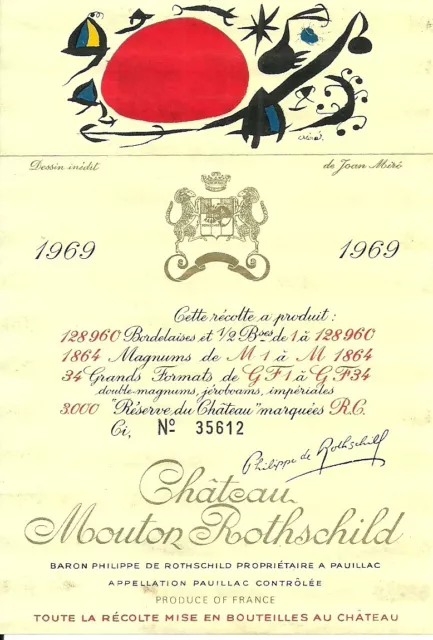 Miró.
Dessin inédit de Joan Miró
1969 1969
Cette récolte a produit :
128960 Bordelaises et 1/2 Bses de 1 à 128960
1864 Magnums de M 1 à M 1864
34 Grands Formats de G F 1 à G F 34
double-magnums, jéroboams, impériales
3.000 "Réserve du Château" marquées R.C.
Ci, Nº 35612
Philippe de Rothschild
Château
Mouton Rothschild
BARON PHILIPPE DE ROTHSCHILD PROPRIÉTAIRE A PAUILLAC
APPELLATION PAUILLAC CONTRÔLÉE
PRODUCE OF FRANCE
TOUTE LA RÉCOLTE MISE EN BOUTEILLES AU CHÂTEAU